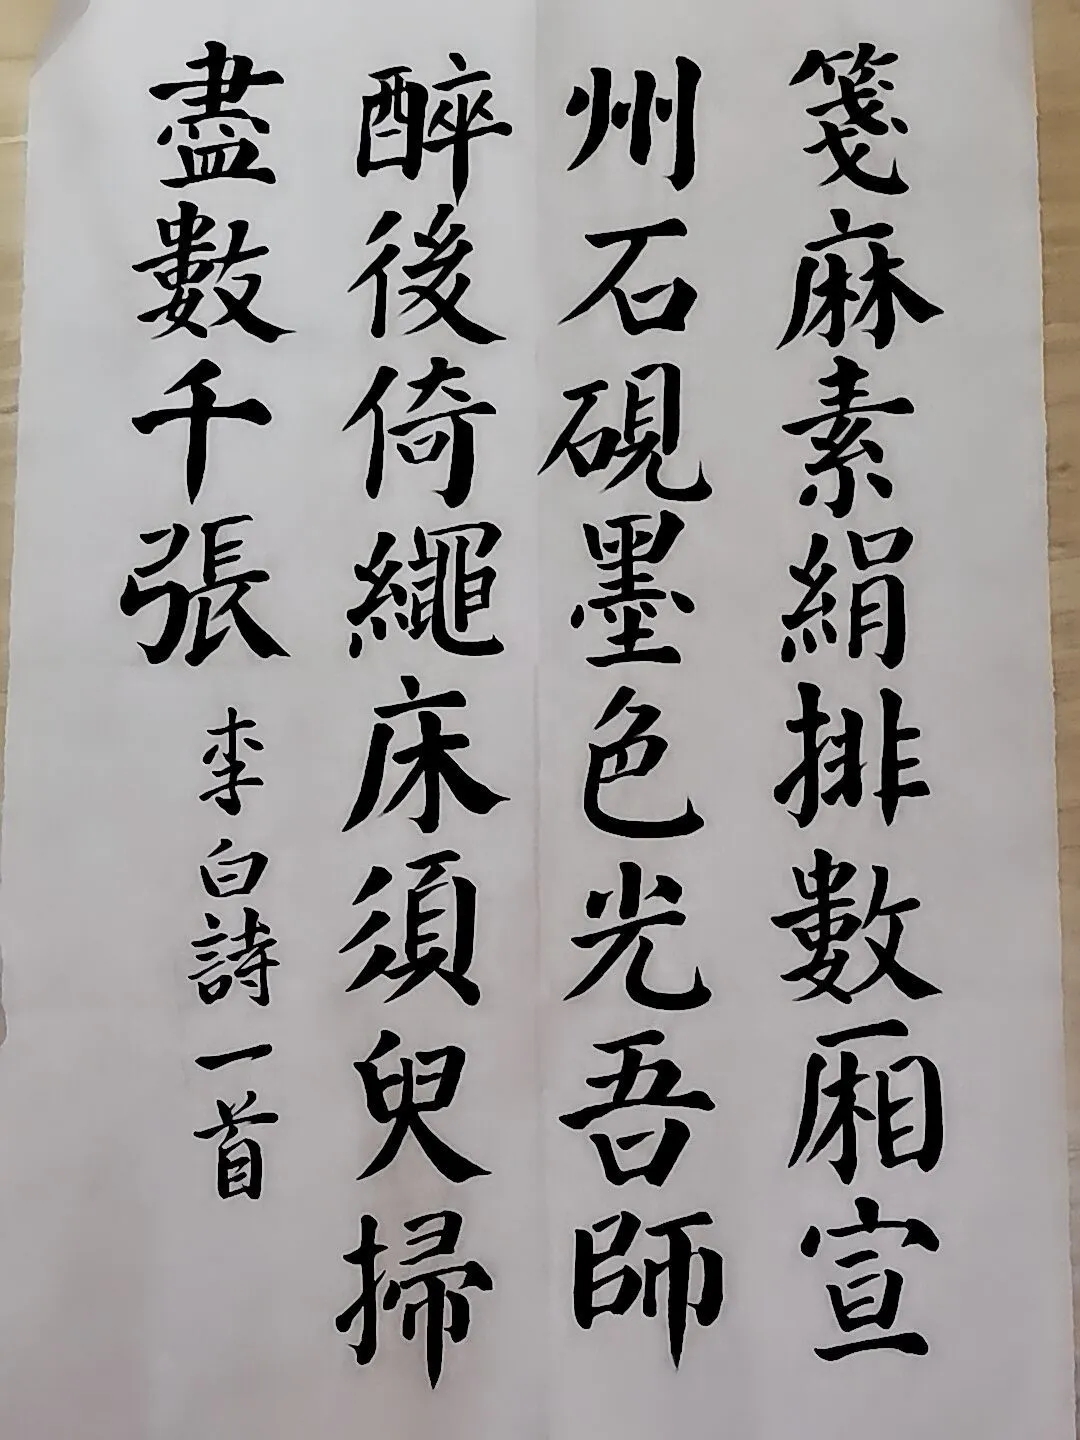 箋麻素絹排數厢宣
州石硯墨色光吾師
醉後倚繩床須臾掃
盡數千張
李白詩一首